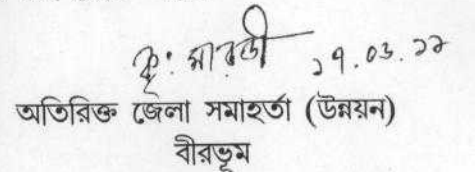 কৃ: মারডী ১৭.০৩.২২
অতিরিক্ত জেলা সমাহর্তা (উন্নয়ন)
বীরভূম